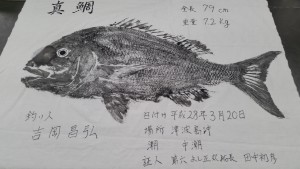 真鯛
全長 79cm
重量 7.2kg
釣り人
吉岡昌弘
日付 平成28年3月20日
場所 津波島沖
潮 中潮
証人